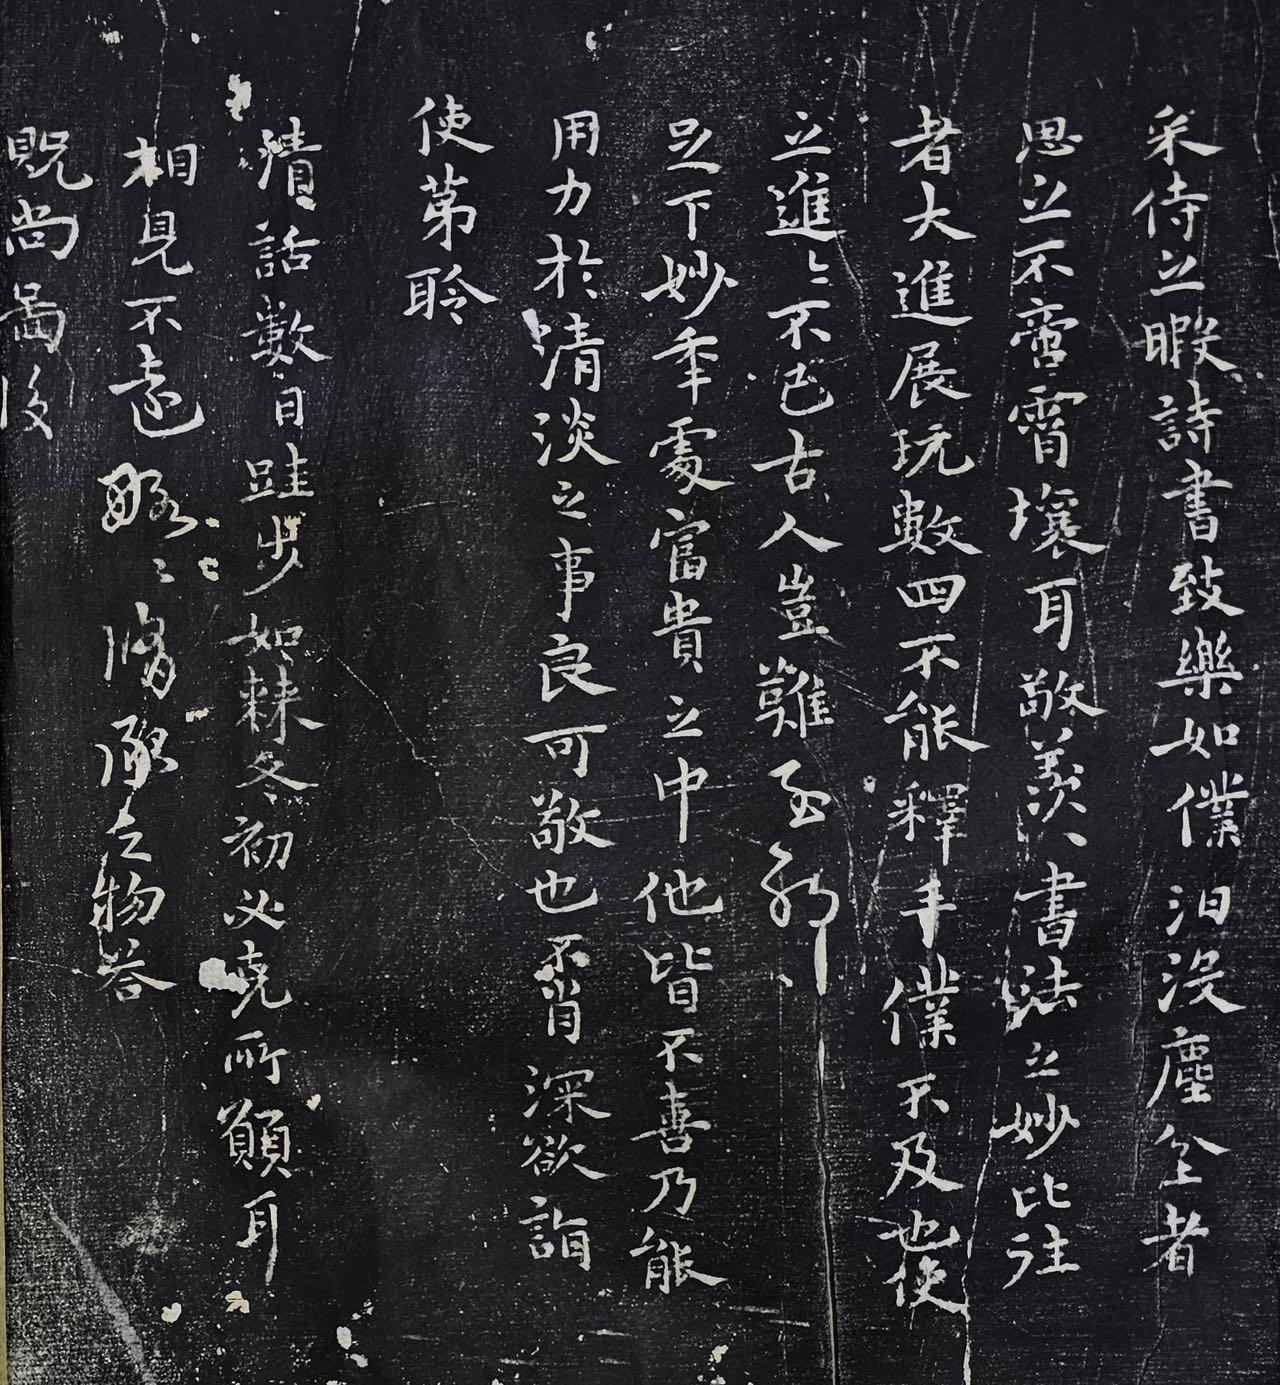 采侍之暇詩書致樂如僕汩没塵坌者
思之不啻霄壤耳敬羨書法之妙比往
者大進展玩數四不能釋手僕不及也使
之進之不已古人豈難至耶
足下妙年處富貴之中他皆不喜乃能
用力於清淡之事良可敬也不肖深欲詣
使苐聆
清話數日跬步如棘冬初必克所願耳
相見不遠略之脩承之物荅
貺尚啚後